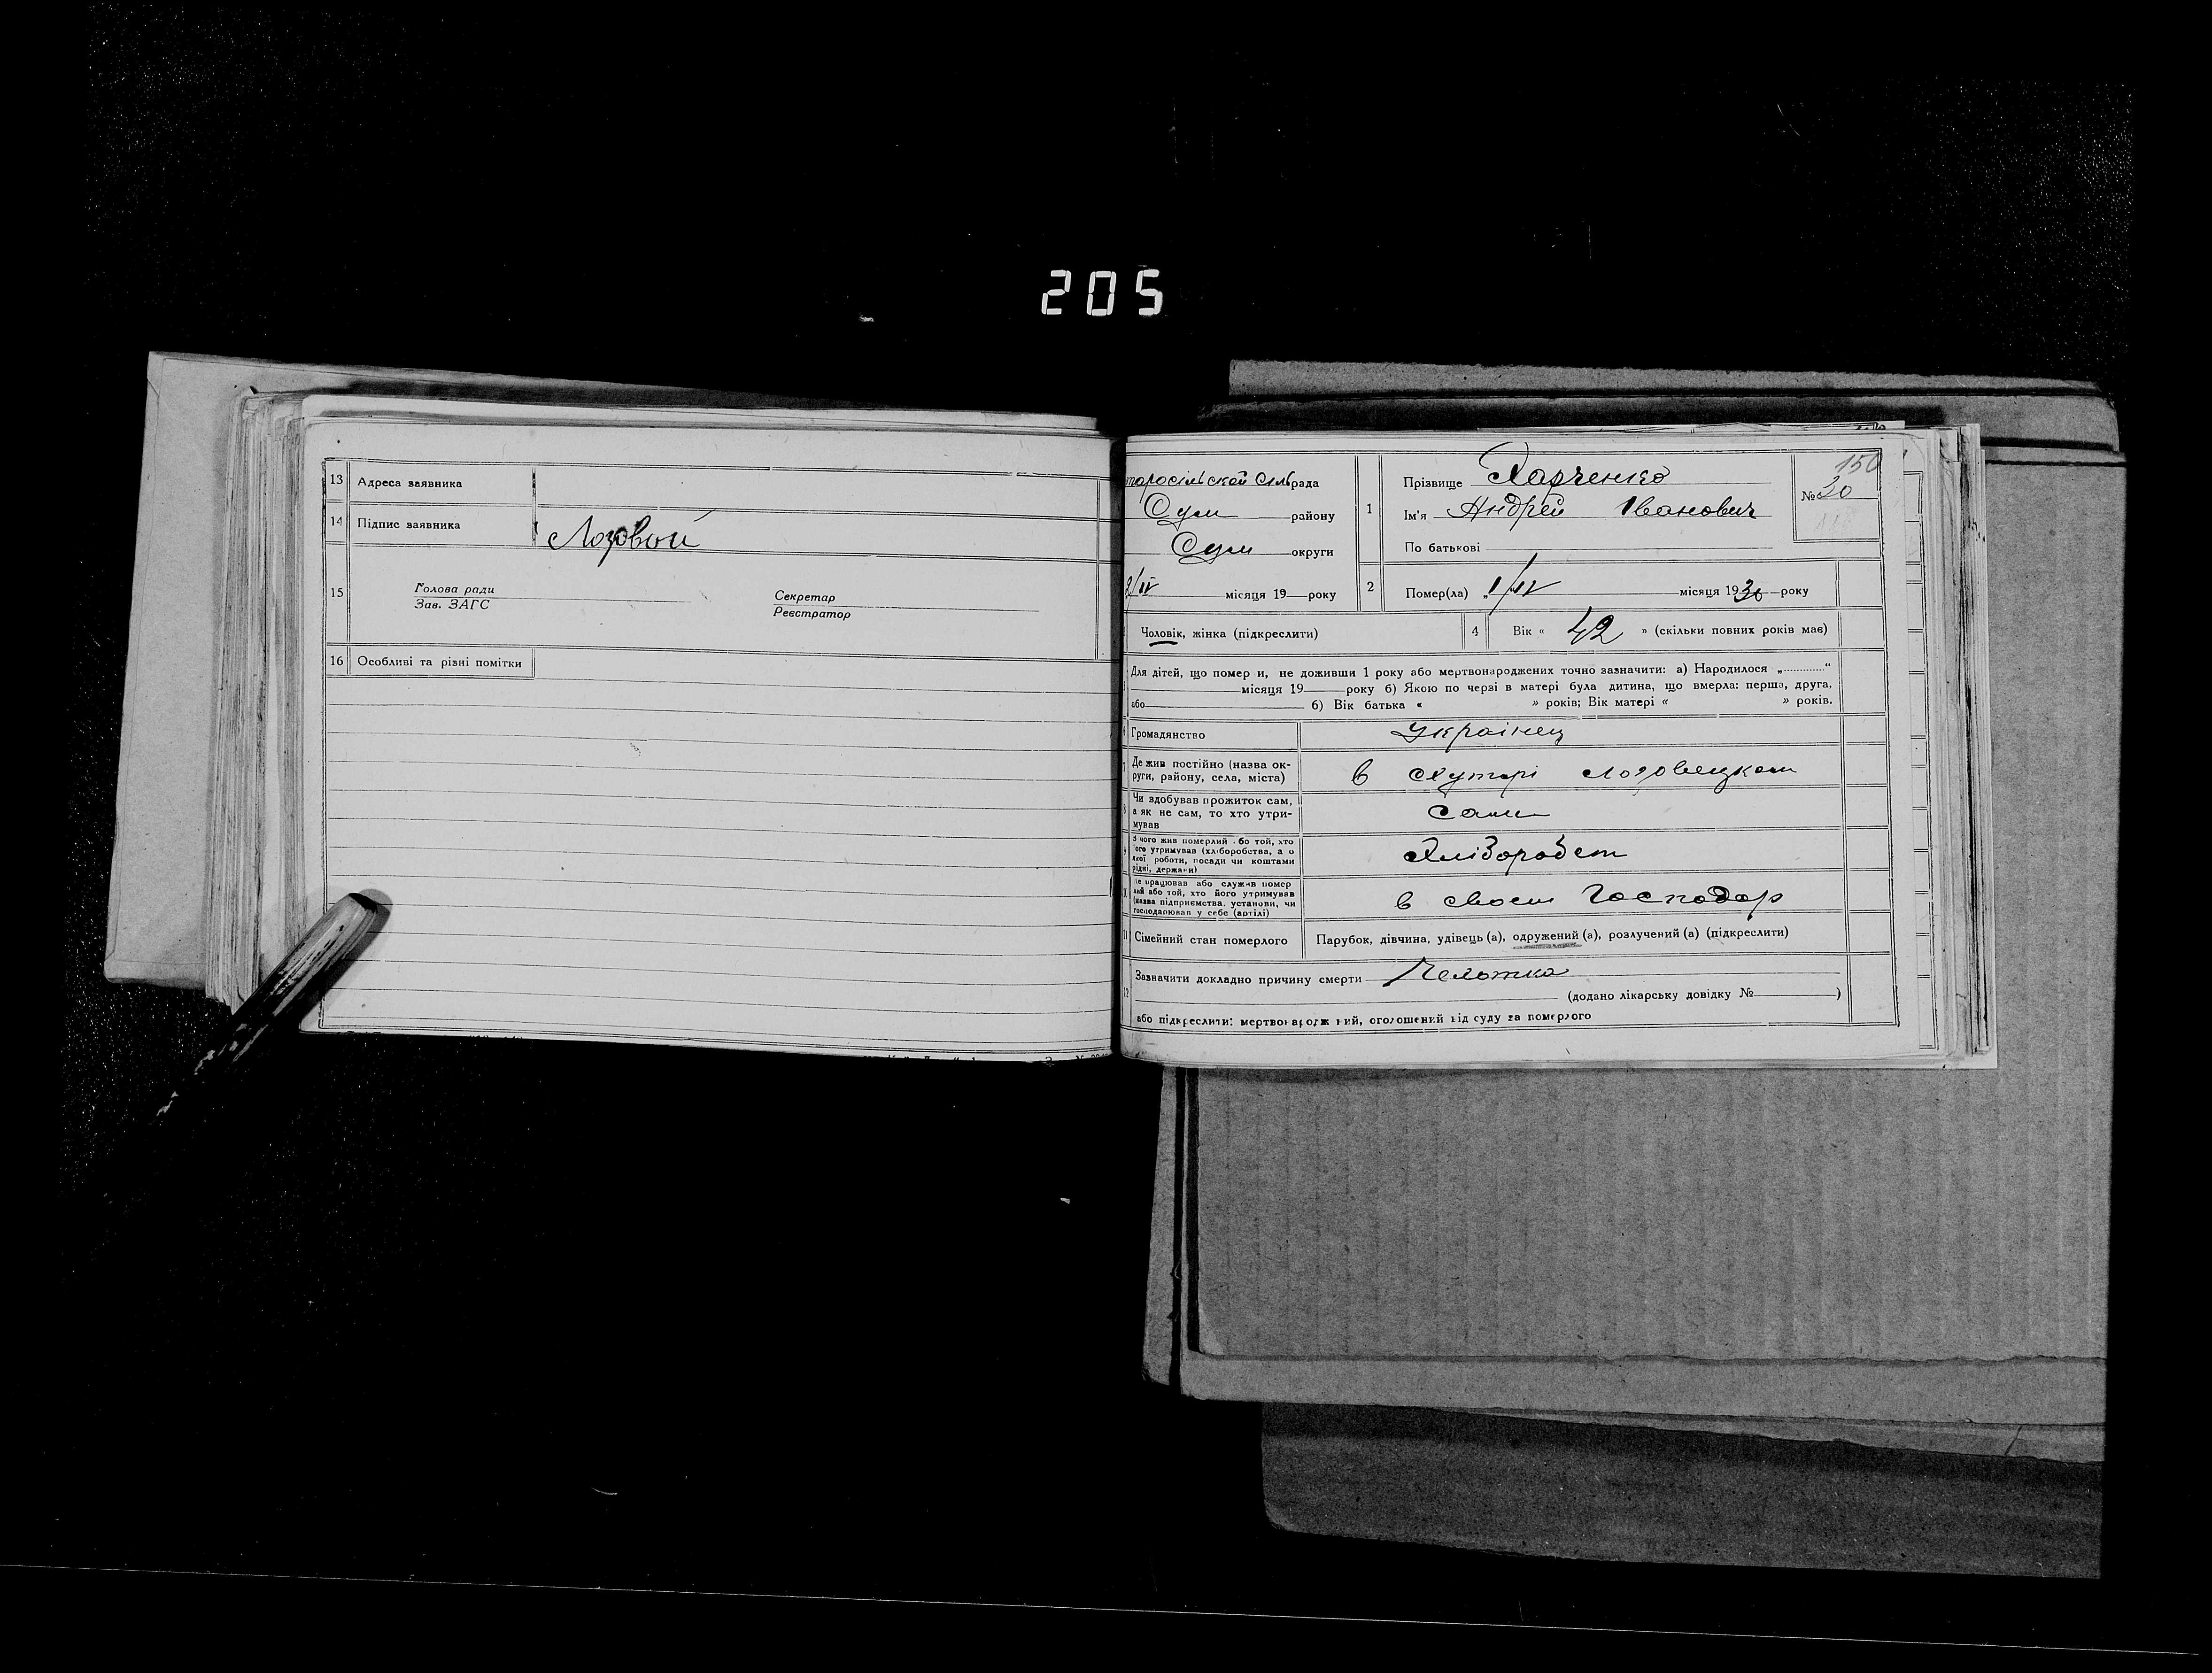 205
13 Адреса заявника
14 Підпис заявника Лозовой
15 Голова ради
Зав. ЗАГС
Секретар
Реєстратор
16 Особливі та різні помітки
таросільской Сільрада
Сум району
Сум округи
місяця 19 року
1 Прізвище Харченко
Ім'я Андрей Іванович
По батькові
150
№ 30
2 Помер(ла) „1/IV місяця 1930 року
Чоловік, жінка (підкреслити)
4 Вік « 42 » (скільки повних років має)
Для дітей, що помер и, не доживши 1 року або мертвонароджених точно зазначити: а) Народилося „.............“
місяця 19 року б) Якою по черзі в матері була дитина, що вмерла: перша, друга,
або б) Вік батька « » років; Вік матері « » років.
6 Громадянство Українец
7 Де жив постійно (назва ок-
руги, району, села, міста) в Хуторі Лозовецком
8 Чи здобував прожиток сам,
а як не сам, то хто утри-
мував Сам
9 З чого жив померлий або той, хто
його утримував (хліборобства, а о
якої роботи, посади чи коштами
рідні, держави) Хлібороб
Де працював або служив помер
лий або той, хто його утримував
(назва підприємства, установи, чи
господарював у себе (артілі) в своем Господар
11 Сімейний стан померлого Парубок, дівчина, удівець (а), одружений (а), розлучений (а) (підкреслити)
12 Зазначити докладно причину смерти Чехотка
(додано лікарську довідку № )
або підкреслити: мертвонародж ний, оголошений від суду за померлого